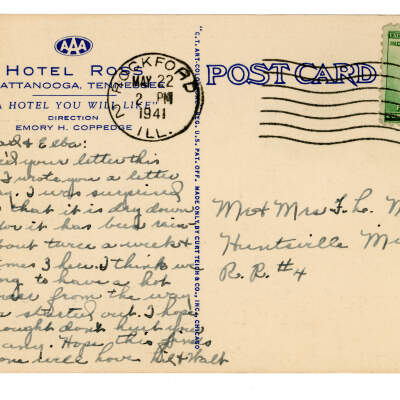 AAA
HOTEL ROSS
ATTANOOGA, TENNESSEE
A HOTEL YOU WILL LIKE"
DIRECTION
EMORY H. COPPEDGE
ROCKFORD
MAY 22
2 PM
1941
ILL.
POST CARD
"C.T. ART-COLO REG. U.S. PAT. OFF. MADE ONLY BY CURT TEICH & CO., INC., CHICAGO
& Elba:
your letter this
I wrote you a letter
I was surprised
that it is dry down
for it has been rain
about twice a week &
times 3 here. I think we
going to have a hot
from the way
started out. I hope
drought don't hurt you
any. Hope this finds
one well. Love Bil & Walt
Mr & Mrs F. L. M
Huntsville
R. R. #4